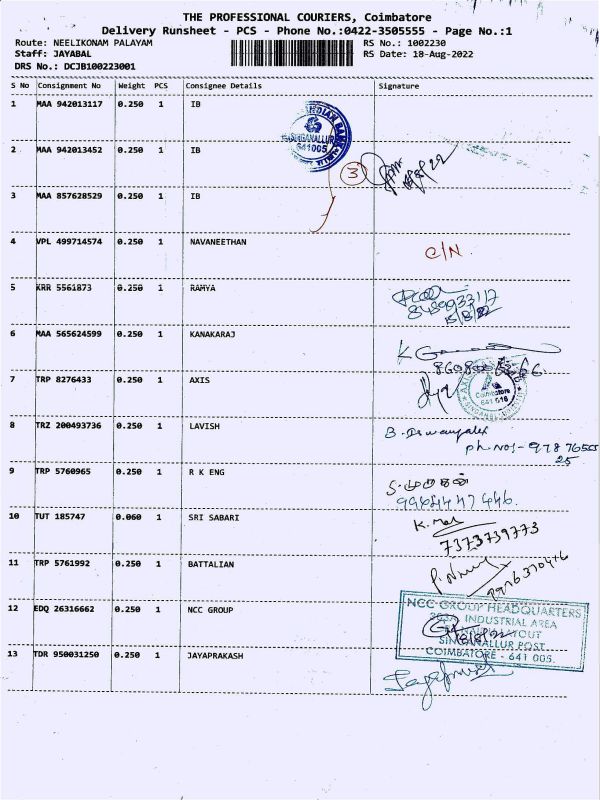 THE PROFESSIONAL COURIERS, Coimbatore
Delivery Runsheet - PCS - Phone No.:0422-3505555 - Page No.:1
Route: NEELIKONAM PALAYAM RS No.: 1002230
Staff: JAYABAL RS Date: 18-Aug-2022
DRS No.: DCJB100223001
S No Consignment No Weight PCS Consignee Details Signature
1 MAA 942013117 0.250 1 IB
INDIAN BANK
SINGANALLUR
641005
2 MAA 942013452 0.250 1 IB
3
3 MAA 857628529 0.250 1 IB
4 VPL 499714574 0.250 1 NAVANEETHAN C/N
5 KRR 5561873 0.250 1 RAMYA
8489933117
18/8/22
6 MAA 565624599 0.250 1 KANAKARAJ
7 TRP 8276433 0.250 1 AXIS
Coimbatore
641 016
8 TRZ 200493736 0.250 1 LAVISH
ph.No:- 978 76555
25
9 TRP 5760965 0.250 1 R K ENG
S. முருகன்
10 TUT 185747 0.060 1 SRI SABARI
7373739773
11 TRP 5761992 0.250 1 BATTALIAN
12 EDQ 26316662 0.250 1 NCC GROUP
NCC GROUP HEADQUARTERS
INDUSTRIAL AREA
LAYOUT
SINGANALLUR POST
COIMBATORE - 641 005.
13 TDR 950031250 0.250 1 JAYAPRAKASH